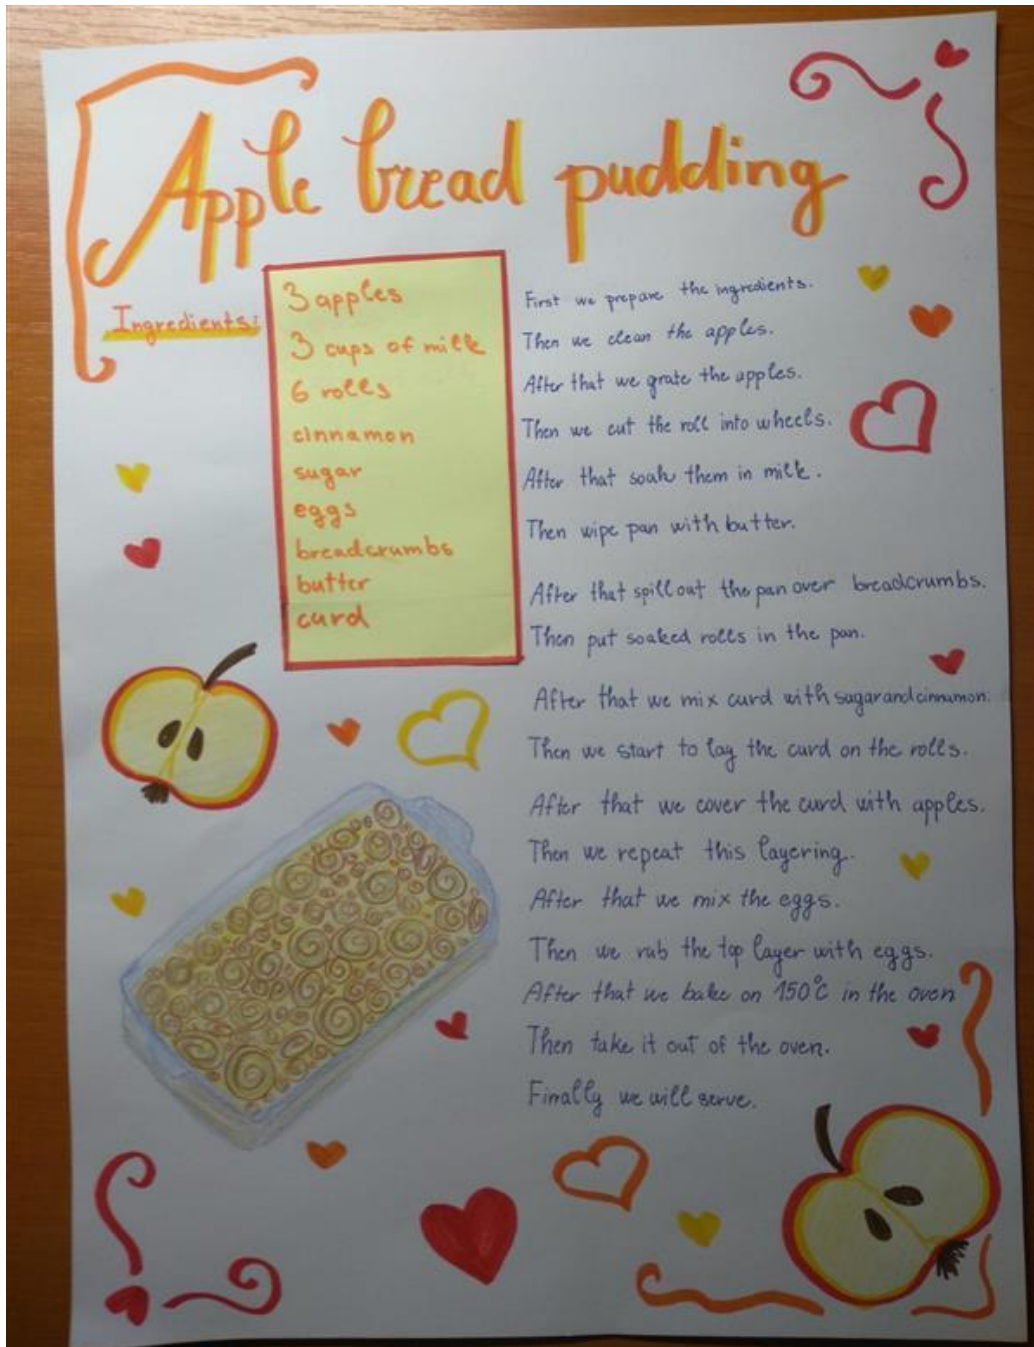 Apple bread pudding
Ingredients:
3 apples
3 cups of milk
6 rolls
cinnamon
sugar
eggs
breadcrumbs
butter
curd
First we prepare the ingredients.
Then we clean the apples.
After that we grate the apples.
Then we cut the roll into wheels.
After that soak them in milk.
Then wipe pan with butter.
After that spill out the pan over breadcrumbs.
Then put soaked rolls in the pan.
After that we mix curd with sugar and cinnamon.
Then we start to lay the curd on the rolls.
After that we cover the curd with apples.
Then we repeat this layering.
After that we mix the eggs.
Then we rub the top layer with eggs.
After that we bake on 150°C in the oven
Then take it out of the oven.
Finally we will serve.